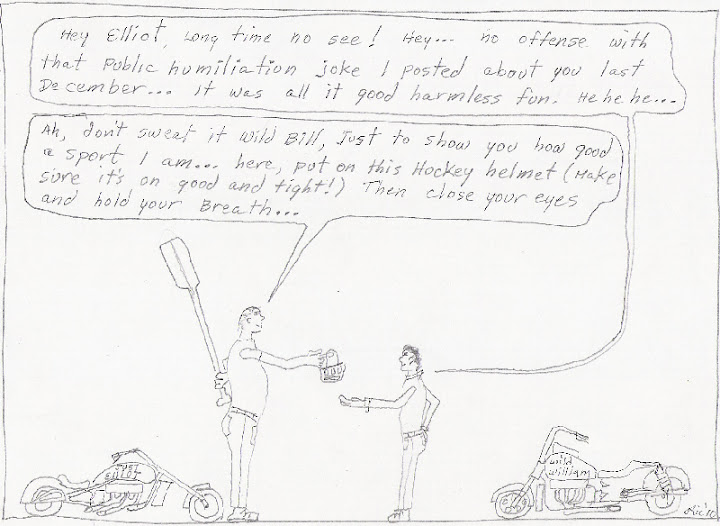 Hey Elliot, Long time no see! Hey... no offense with
that Public humiliation joke I posted about you last
December... it was all it good harmless fun. He he he...
Ah, don't sweat it Wild Bill, Just to show you how good
a sport I am... here, put on this Hockey helmet (Make
sure it's on good and tight!) Then close your eyes
and hold your Breath...
wild
william